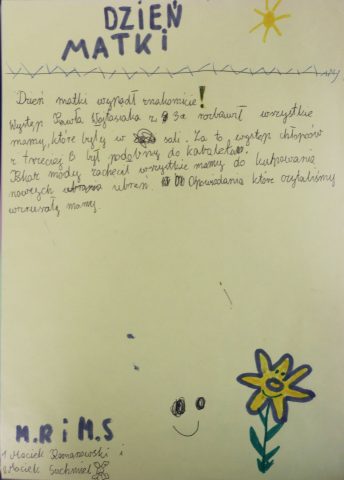 DZIEŃ
MATKI
Dzień matki wypadł znakomicie!
Występ Pawła Wojtasiaka z 3a rozbawił wszystkie
mamy, które były w sali. Za to występ chłopców
z trzeciej B był podobny do kabaretu.
Pokaz mody zachęcił wszystkie mamy do kupowania
nowych ubrań. Opowiadania które czytaliśmy
wzruszały mamy.
M.R i M.S
1 Maciek Romanowski i
Maciek